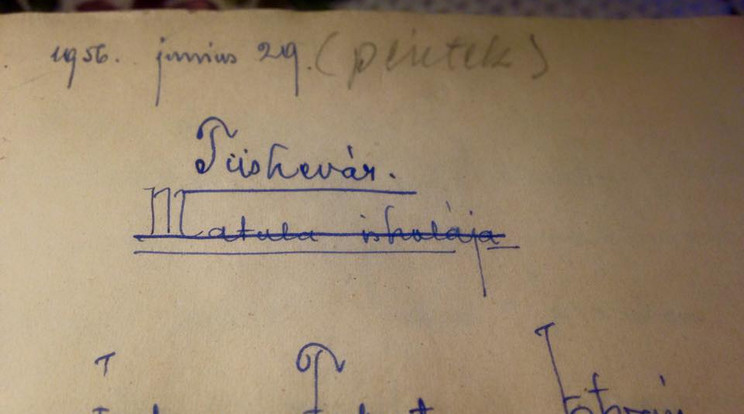 1956. junius 29. (péntek)
Tüskevár.
Matula iskolája